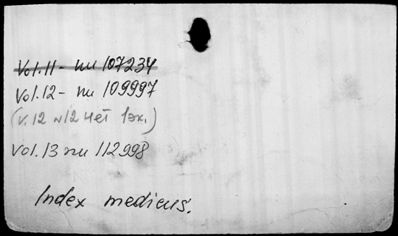 Vol. 11 - nu 107234
Vol. 12 - nu 109997
(v. 12 N12 нет 1эк.)
Vol. 13 nu 112998
Index medicus.